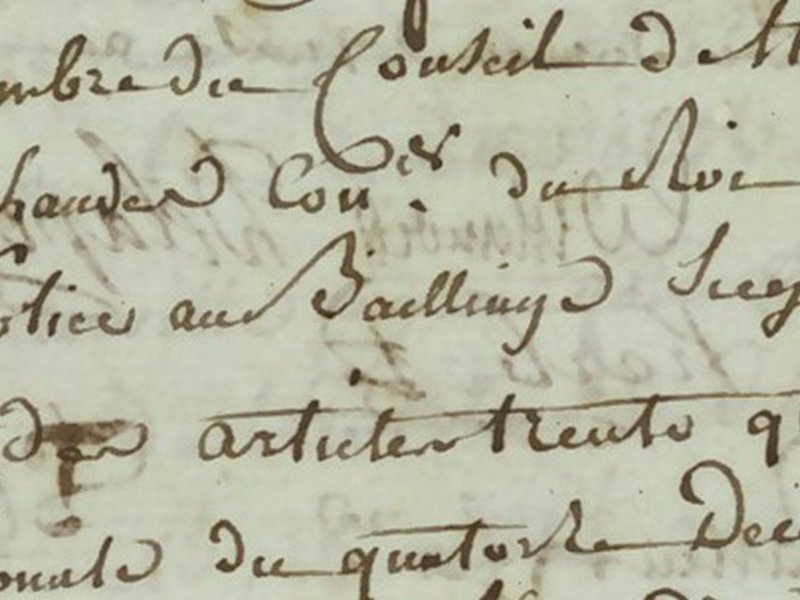 mbre du Conseil d
Con.er du Roi
olice au Bailliage Sieg
des articles trente q
onale du quatorze Dec